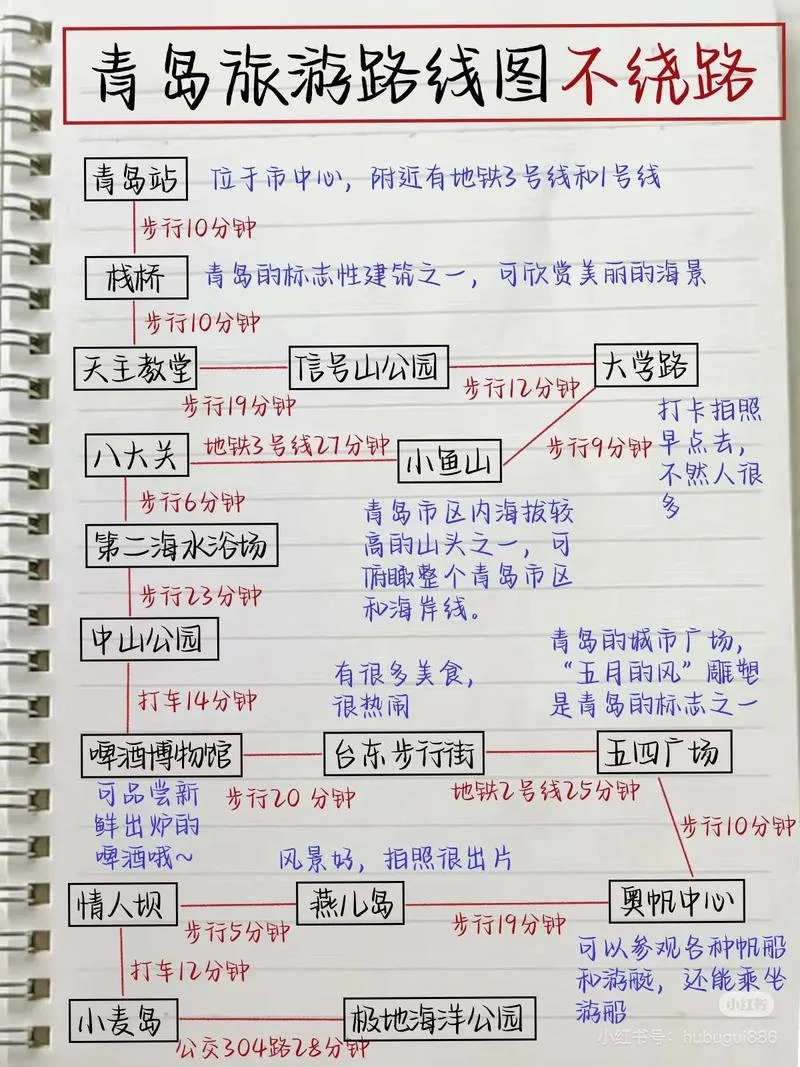 青岛旅游路线图不绕路
青岛站
位于市中心，附近有地铁3号线和1号线
步行10分钟
栈桥
青岛的标志性建筑之一，可欣赏美丽的海景
步行10分钟
天主教堂
信号山公园
大学路
步行19分钟
步行12分钟
打卡拍照
早点去，
不然人很
多
步行9分钟
八大关
地铁3号线27分钟
小鱼山
步行6分钟
青岛市区内海拔较
高的山头之一，可
俯瞰整个青岛市区
和海岸线。
第二海水浴场
步行23分钟
中山公园
青岛的城市广场，
“五月的风”雕塑
是青岛的标志之一
有很多美食，
很热闹
打车14分钟
啤酒博物馆
台东步行街
五四广场
可品尝新
鲜出炉的
啤酒哦~
步行20分钟
地铁2号线25分钟
步行10分钟
风景好，拍照很出片
情人坝
燕儿岛
奥帆中心
步行5分钟
步行19分钟
可以参观各种帆船
和游艇，还能乘坐
游船
打车12分钟
小麦岛
极地海洋公园
公交304路28分钟
小红书
小红书号：hubugui886